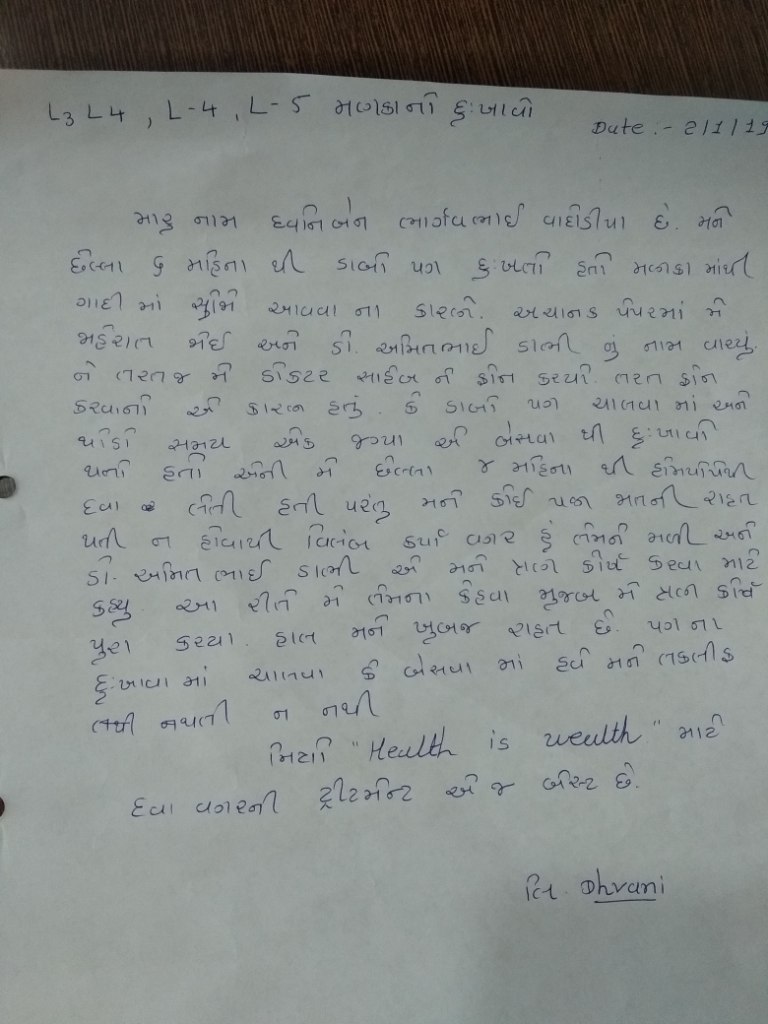 L3 L4 , L-4 , L-5 મણકાનો દુઃખાવો
Date :- 2/1/19
મારુ નામ ધ્વનિબેન ભાર્ગવભાઈ વાદોડીયા છે. મને
છેલ્લા ૬ મહિના થી ડાબો પગ દુઃખતો હતો મણકા માંથી
ગાદી માં આવવા ના કારણે. અચાનક પેપરમાં મે
જાહેરાત જોઈ અને ડો. અમિતભાઈ ડાભી નું નામ વાચ્યું.
ને તરતજ મે ડોકટર સાહેબ ને ફોન કરયો. તરત ફોન
કરવાનો એ કારણ હતું. કે ડાબો પગ ચાલવા માં અને
થોડો સમય એક જગ્યા એ બેસવા થી દુઃખાવો
થતો હતો એની મે છેલ્લા ૪ મહિના થી હોમિયોપેથી
દવા લેતી હતી પરંતુ મને કોઈ પણ જાતની રાહત
થતી ન હોવાથી વિલંબ કર્યા વગર હું તેમને મળી અને
ડો. અમિત ભાઈ ડાભી એ મને ત્રણ કોર્ષ કરવા માટે
કહ્યુ. આ રીતે મે તેમના કેહવા મુજબ મે ત્રણ કોર્ષ
પુરા કરયા. હાલ મને ખુબજ રાહત છે. પગ ના
દુઃખાવા માં ચાલવા કે બેસવા માં હવે મને તકલીફ
નથી
મિત્રો "Health is wealth" માટે
દવા વગરની ટ્રીટમેન્ટ એ જ બેસ્ટ છે.
લિ. Dhvani